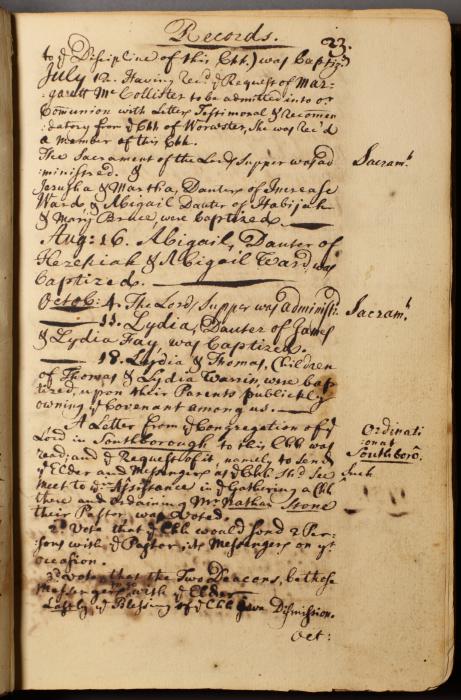 Records.
23.
to ye Discipline of this Chh.) was Baptizd
July 12. Having recd ye Request of Mar-
garett McCollister to be admitted into or
Comunion with Letters Testimonial & Recomen
datory from ye Chh of Worcester, She was Rec'd
a member of this Chh.
The Sacrament of the Lords Supper was ad Sacramt
ministred. &
Jerusha & Martha, Dauters of Increase
Ward & Abigail Dauter of Habijah
& Mary Bruce, were Baptized
Aug: 16. Abigail, Dauter of
Hezekiah & Abigail Ward, was
Baptized.
Octob: 4. The Lords Supper was administ: Sacramt
11. Lydia, Dauter of James
& Lydia Fay, was Baptized.
18. Lydia & Thomas, Children
of Thomas & Lydia Warrin, were bap-
tized, upon their Parents publickly
owning ye Covenant among us.
A Letter from ye Congregation of ye Ordinati
Lord in Southborough to this Chh was on at
read; and ye Request of it, namely to send Southboro.
ye Elder and Messengers of ye Chh Shd See Such
meet to yr Assistance in ye Gathering a Chh
there and ordaining Mr Nathan Stone
their Pastor was Voted.
2d Vote that ye Chh would send 2 Per-
sons with ye Pastor, as Messengers on yt
occasion.
3d Vote that the Two Deacons, be those
Messengers with ye Elder
Lastly, ye Blessing of ye Chh gave Dismission.
Oct: